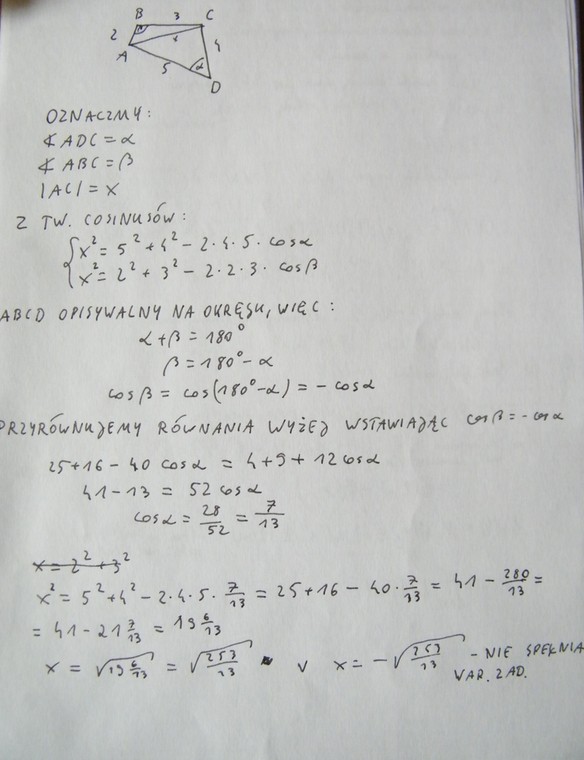 B 3 C
2 x 4
A
5 α
D
OZNACZMY:
∢ ADC = α
∢ ABC = β
|AC| = X
Z TW. COSINUSÓW:
x² = 5² + 4² - 2·4·5· cosα
x² = 2² + 3² - 2·2·3· cosβ
ABCD OPISYWALNY NA OKRĘGU, WIĘC:
α + β = 180°
β = 180° - α
cosβ = cos(180°-α) = - cosα
PRZYRÓWNUJEMY RÓWNANIA WYŻEJ WSTAWIAJĄC cosβ = - cosα
25+16 - 40 cosα = 4+9 + 12cosα
41-13 = 52 cosα
cosα = 28/52 = 7/13
x = 2² + 3²
x² = 5²+4² - 2·4·5· 7/13 = 25+16 - 40· 7/13 = 41 - 280/13 =
= 41 - 21 7/13 = 19 6/13
x = √19 6/13 = √253/13 v x = -√253/13 - NIE SPEŁNIA
WAR. ZAD.